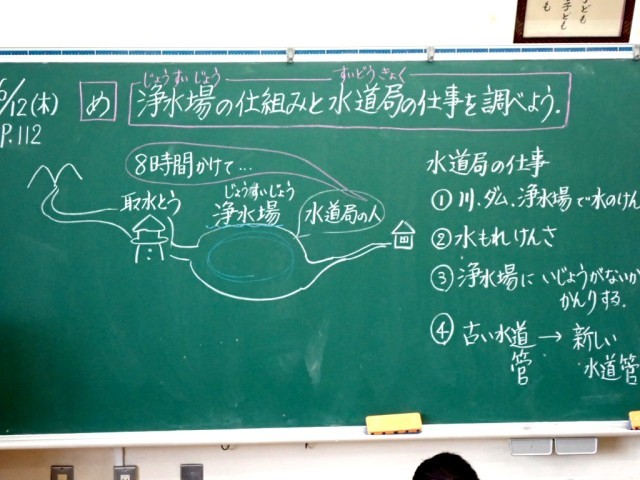 6/12(木)
P.112
め
じょうすいじょう
すいどうきょく
浄水場の仕組みと水道局の仕事を調べよう.
8時間かけて…
取水とう
じょうすいじょう
浄水場
水道局の人
水道局の仕事
①川、ダム、浄水場で水のけん
②水もれけんさ
③浄水場にいじょうがないか
かんりする.
④古い水道管→新しい水道管